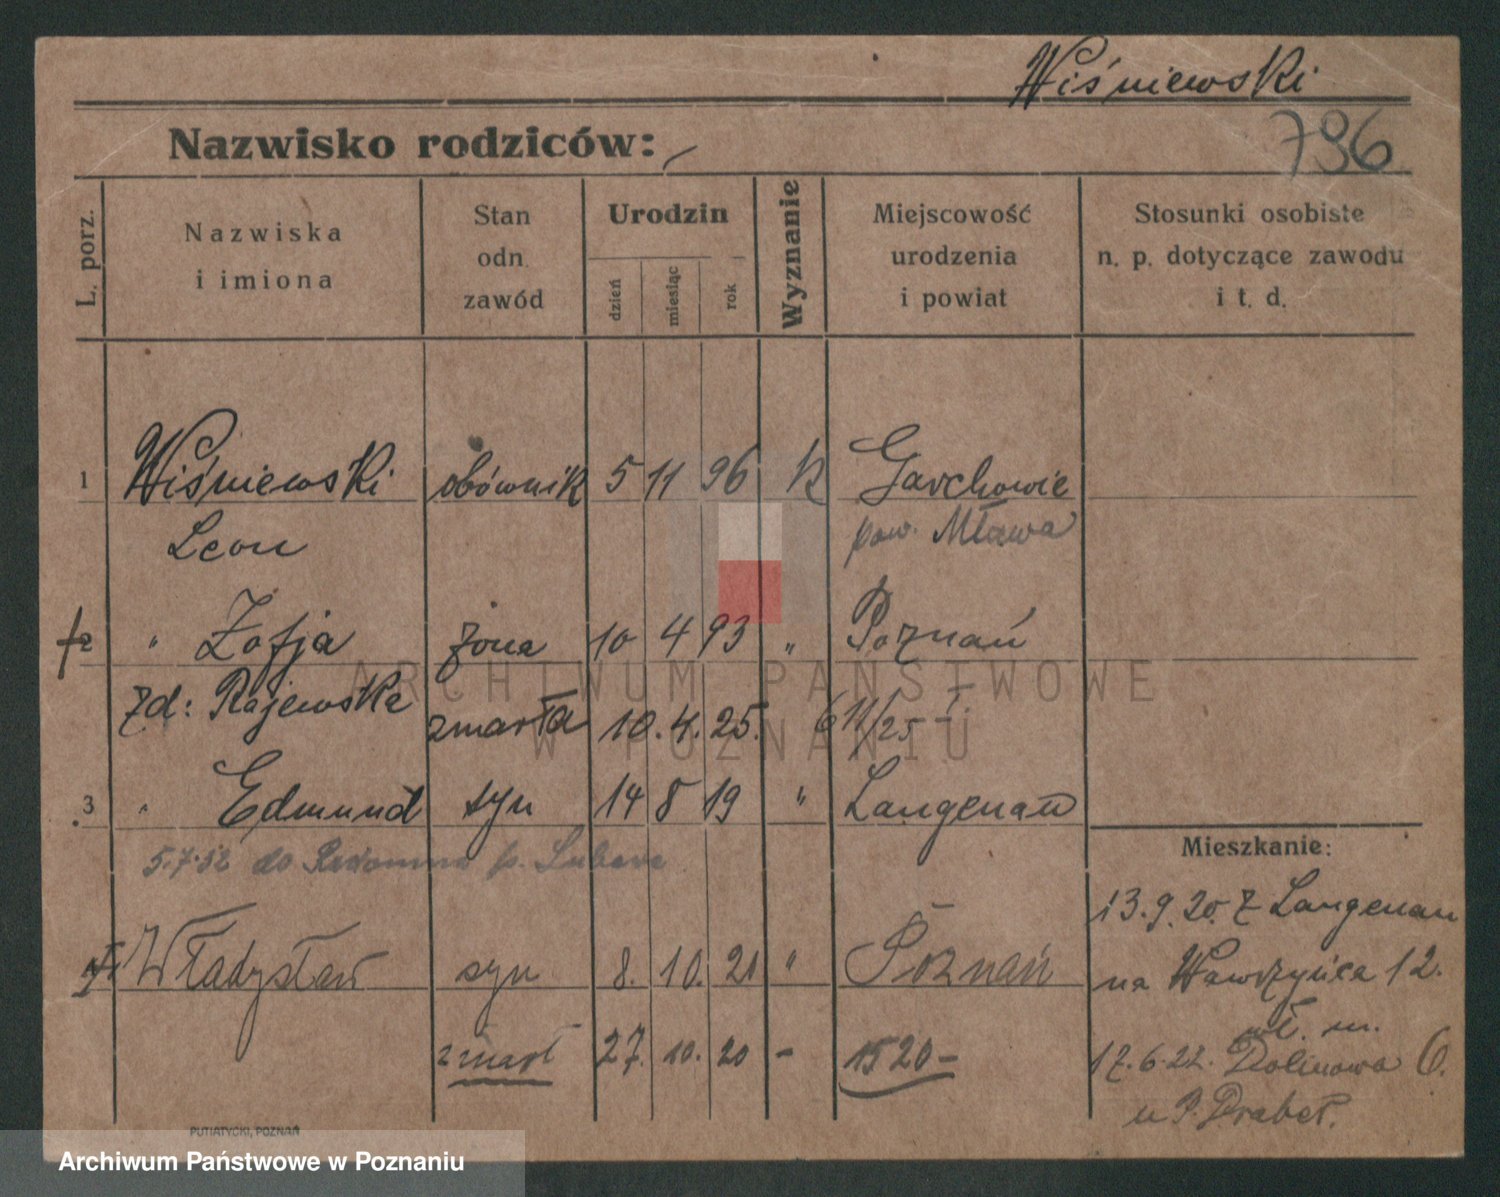 Wiśniewski
796
Nazwisko rodziców: -
L. porz.
Nazwiska
i imiona
Stan
odn.
zawód
Urodzin
dzień
miesiąc
rok
Wyznanie
Miejscowość
urodzenia
i powiat
Stosunki osobiste
n. p. dotyczące zawodu
i t. d.
1 Wiśniewski obównik 5 11 96 k Garchowie
Leon pow. Mława
2 " Zofja żona 10 4 93 " Poznań
zd: Rajewska zmarła 10. 4. 25. 6 11/25
3 " Edmund syn 14 8 19 " Langenau
5.7.32 do p.
Mieszkanie:
13.9.20. z Langenau
4 Władysław syn 8. 10. 20 " Poznań
na Wawrzyńca 12.
zmarł 27. 10. 20 - 1520-
wł. m.
17.6.22. Dolinowa 6.
u P. Drabet.
PUTIATYCKI, POZNAŃ
ARCHIWUM PAŃSTWOWE
W POZNANIU
Archiwum Państwowe w Poznaniu